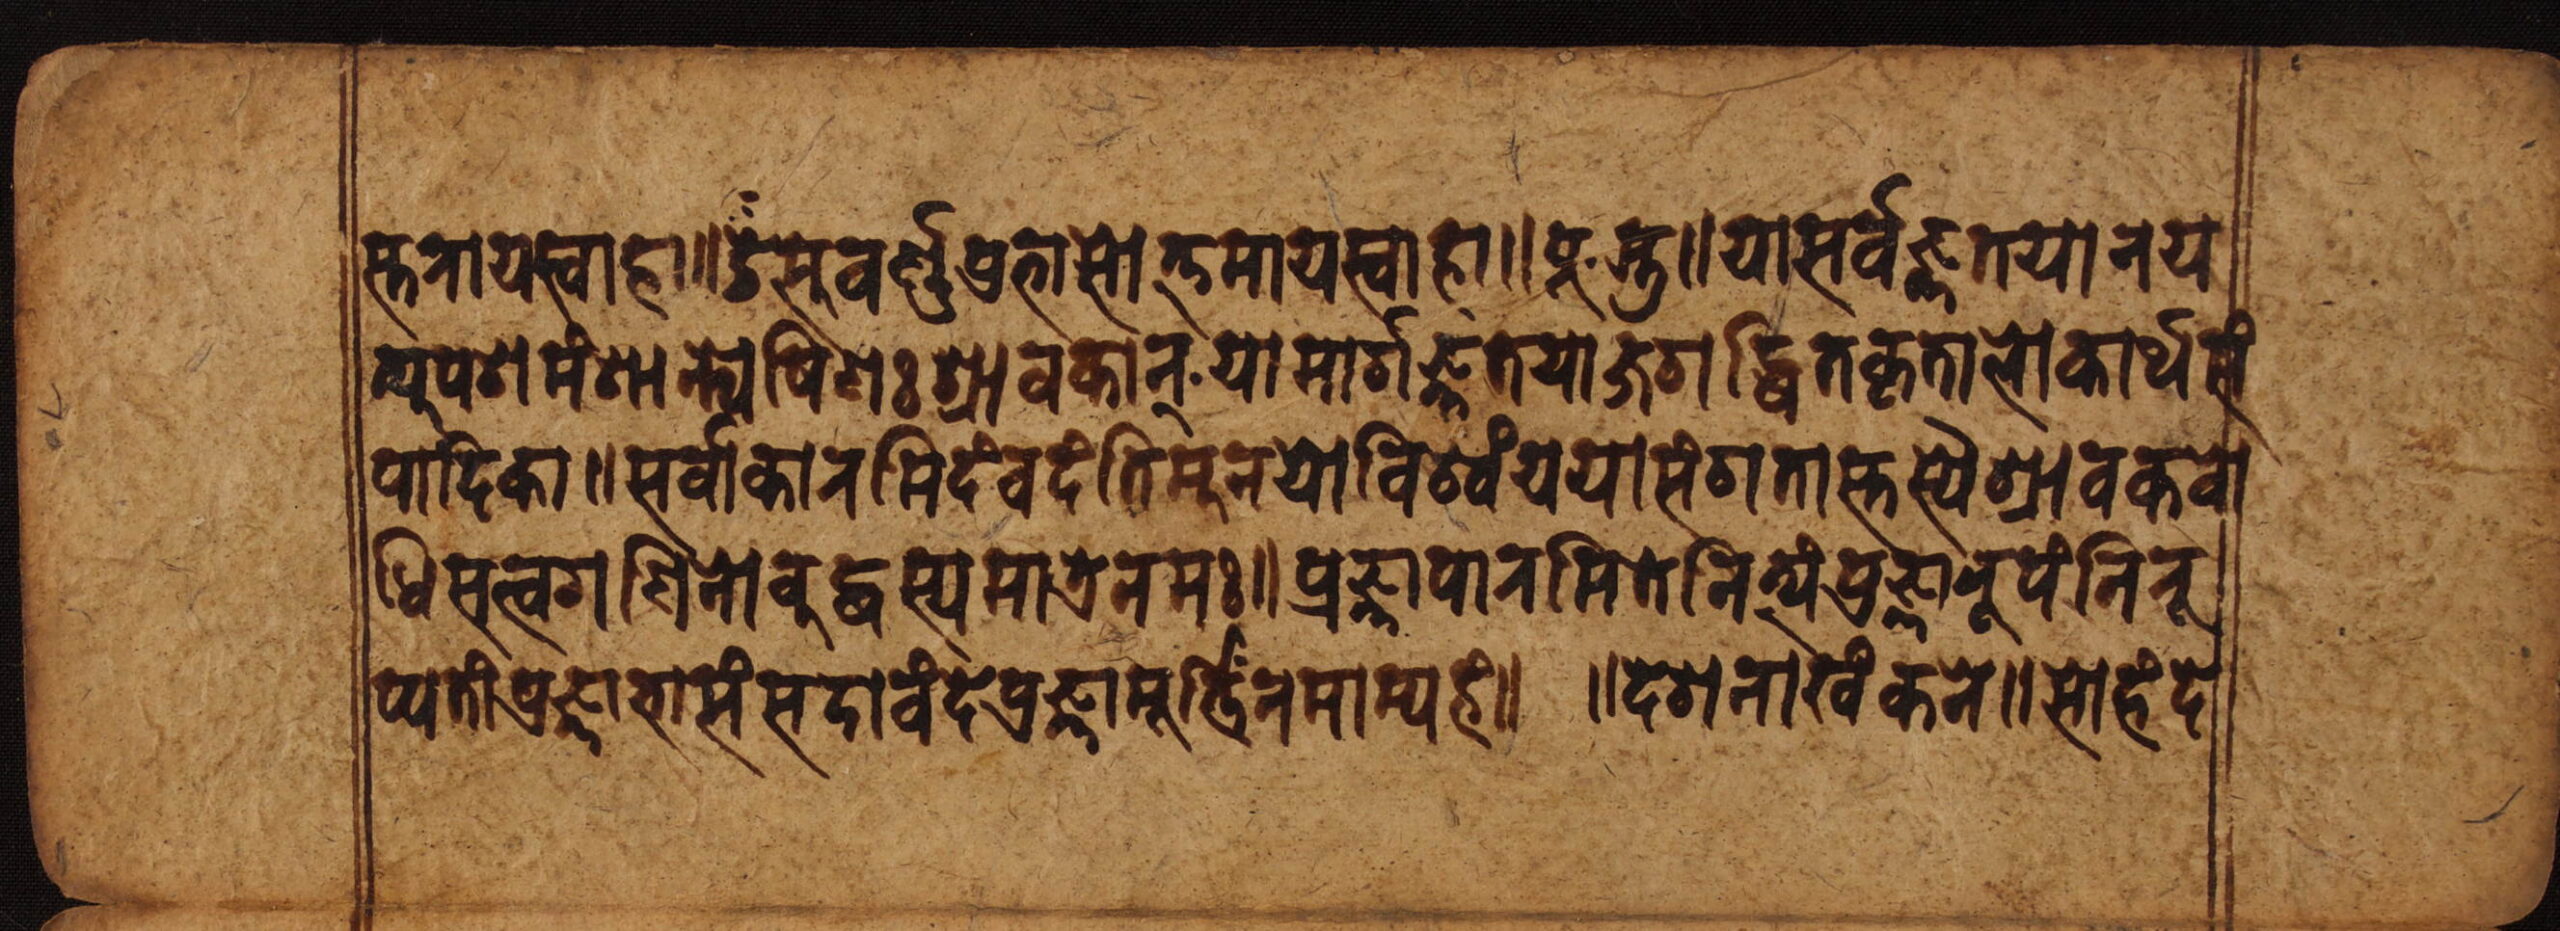 स्तनायस्वाहा॥ ॐसुवर्ण्णप्रभासोत्तमायस्वाहा॥ पू.स्तु॥ यासर्वज्ञतयानय
त्युपशमंशान्त्यैषिणः श्रावकान् यामार्गज्ञतयाजगद्धितकृतालोकार्थसं
पादिका॥ सर्वाकारमिदंवदंतिमुनयोविश्वंययासंगतास्तस्यैश्रावकबो
धिसत्वगणिनोबुद्धस्यमात्रेनमः॥ प्रज्ञापारमितेनित्यंप्रज्ञारूपंनिरू
प्यतीप्रज्ञाभासंसदावंदेप्रज्ञामूर्त्तिंनमाम्यहं॥ ॥देशनाखंकने॥ सोहंदे